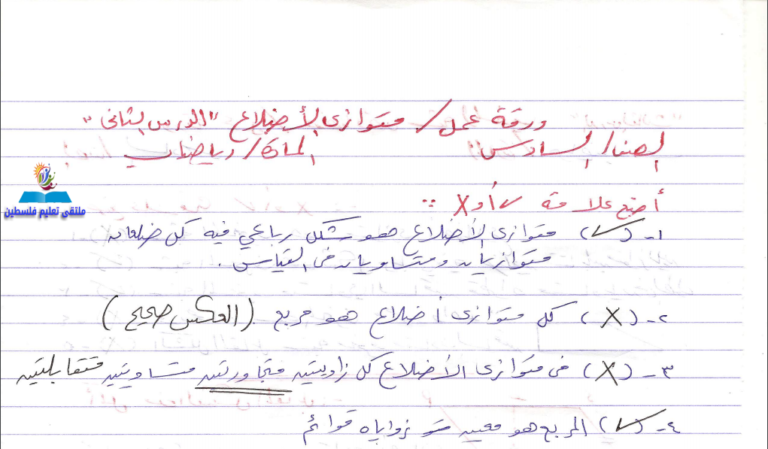 ورقة عمل / متوازي الأضلاع "الدرس الثاني"
الصف / السادس المادة / رياضيات
أضع علامة ✓ أو X :
ملتقى تعليم فلسطين
١- (✓) متوازي الأضلاع هو شكل رباعي فيه كل ضلعان
متوازيان ومتساويان في القياس .
٢- (X) كل متوازي أضلاع هو مربع (العكس صحيح)
٣- (X) في متوازي الأضلاع كل زاويتين متجاورتين متساويتين متقابلتين
٤- (✓) المربع هو معين زواياه قوائم